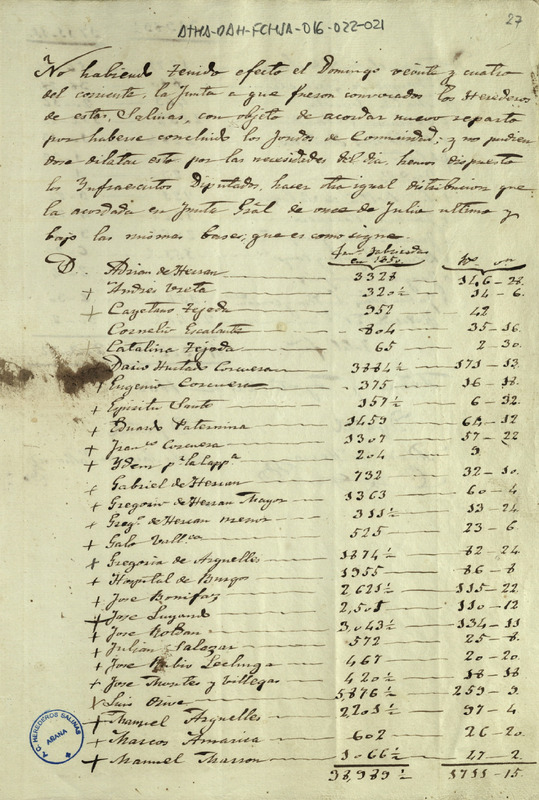 ATHA-DAH-FCHSA-016-022-021
27
No habiendo tenido efecto el Domingo veinte y cuatro
del corriente, la Junta a que fueron convocados los Herederos
de estas Salinas, con objeto de acordar nuevo reparto
por haberse concluido los fondos de Comunidad; y no pudien
dose dilatar esto por las necesidades del dia, hemos dispuesto
los Infraescritos Diputados, hacer otra igual distribucion que
la acordada en Junta Gral de once de Julio ultimo y
bajo las mismas bases, que es como sigue
fan.s fabricadas en 1850. Rs. vn
D. Adrian de Herran 3328 146-28.
+ Andres Ureta 320½ 14-6.
+ Cayetano Tejada 952 42
Cornelio Escalante 804 35-16.
+ Catalina Tejada 65 2 30.
Dario Hurtado Corcuera 3884½ 171-13
+ Eugenio Corcuera 375 16-18.
+ Espiritu Santo 157½ 6-32
+ Eduardo Paternina 1459 64-12
+ Fran.co Corcuera 1307 57-22
+ Ydem p.a la capp.a 204 9
+ Gabriel de Herran 732 32-10.
+ Gregorio de Herran Mayor 1363 60-4
+ Greg.o de Herran menor 311½ 13-24
+ Galo 525 23-6
+ Gregoria de Arguelles 1874½ 82-24
+ Hospital de Burgos 1955 86-8
+ Jose Bonifaz 2621½ 115-22
+ Jose Luyando 2,501 110-12
+ Jose Roldan 3,043½ 134-11
+ Julian Salazar 572 25-8.
+ Jose Rubio Lechuga 467 20-20.
+ Jose Montes y Villegas 420½ 18-18
+ Luis Orive 5876½ 259-9
+ Manuel Arguelles 2201½ 97-4
+ Marcos Amarica 602 26-20
+ Manuel Marron 1-066½ 47-2
38,989½ 1711-15
C. HEREDEROS SALINAS
AÑANA